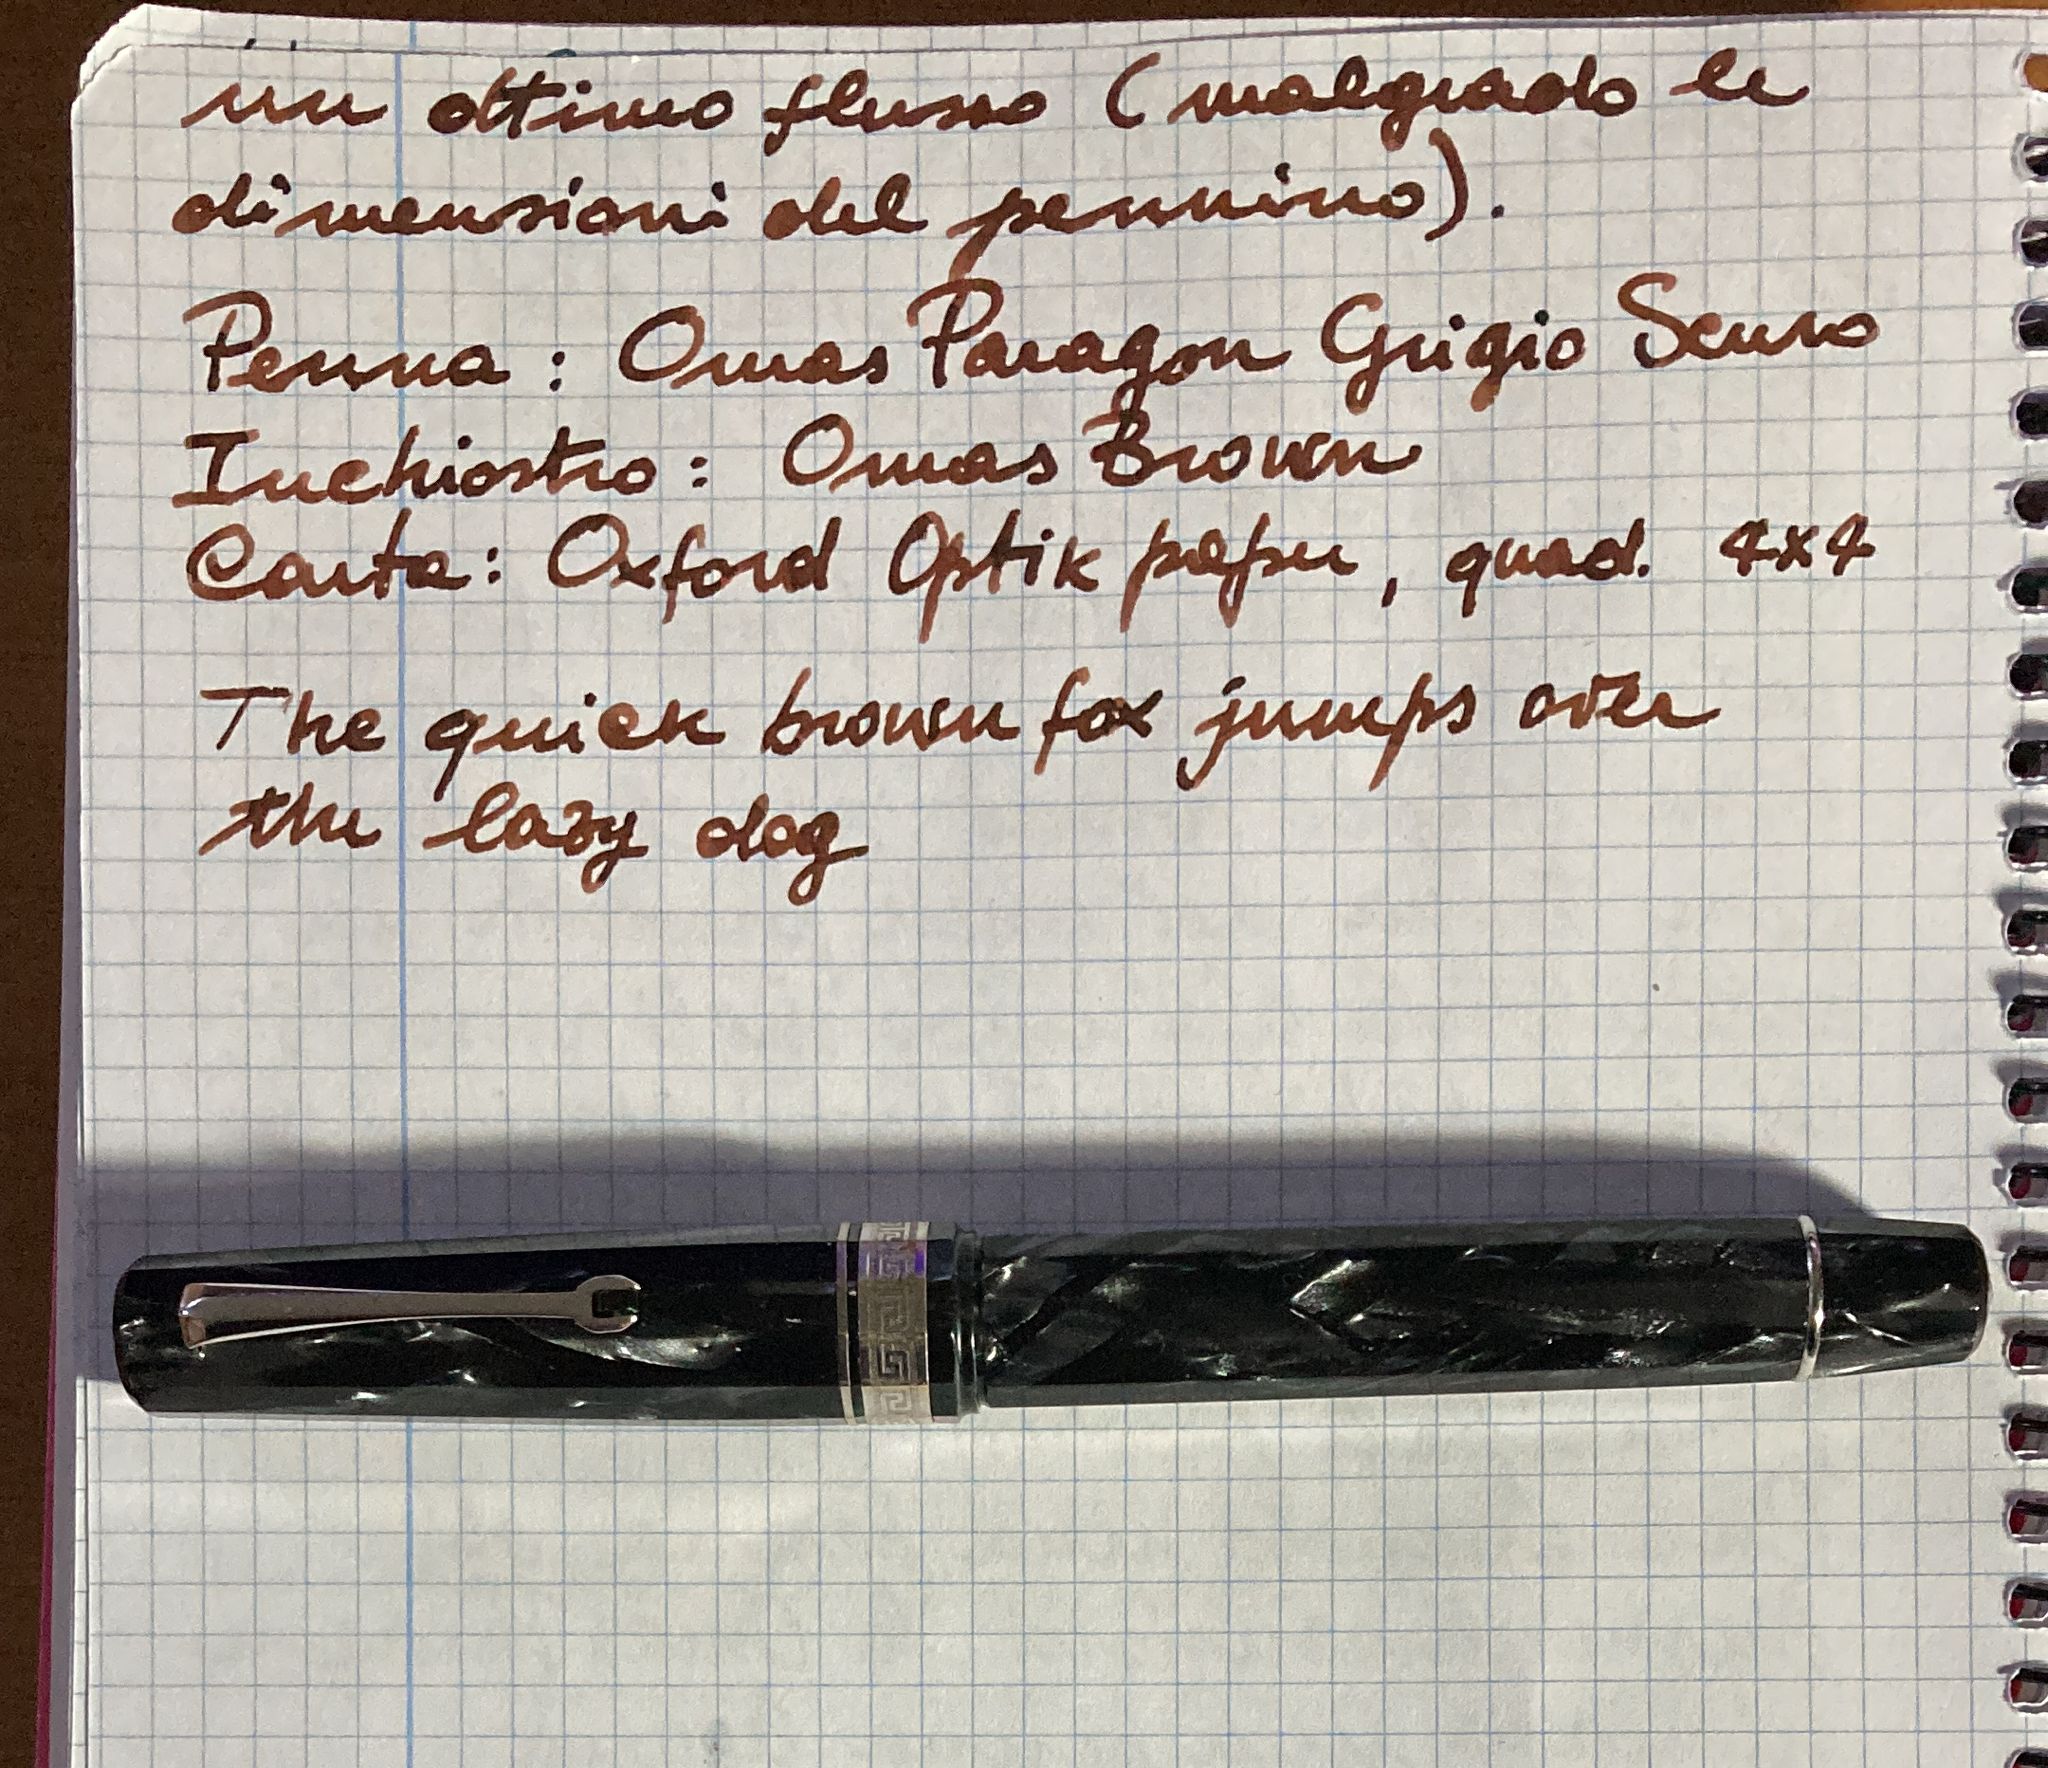 un ottimo flusso (malgrado le
dimensioni del pennino).
Penna: Omas Paragon Grigio Scuro
Inchiostro: Omas Brown
Carta: Oxford Optik paper, quad. 4x4
The quick brown fox jumps over
the lazy dog